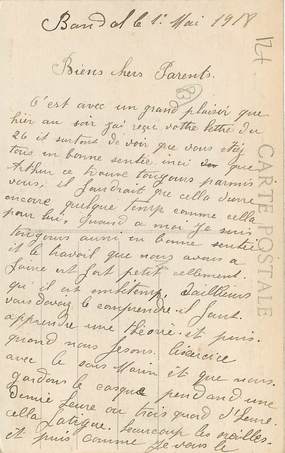 Bandol le 1er Mai 1918
124
Biens chers Parents.
83
C'est avec un grand plaisir que
hier au soir j'ai reçu vottre lettre du
26 et surtout de voir que vous etez
tous en bonne sentée insi que
Arthur ce trouve toujours parmis
vous, il faudrait que cella dure
encore quelque temp comme cella
pour lui, Quand a moi je suis
toujours aussi en bonne sentée
et le travail que nous avons a
faire est fort petit cellement
qu'il est embetemp. Dailleurs
vous devez le comprendre il faut
apprendre une théorie et puis
quand nous fesons l'icercice
avec le sous Marin et que nous
gardons le casque pendand une
Demie heure ou trois quard d'heure
cella fatigue beaucoup les oreilles
et puis comme je vous le
CARTE POSTALE